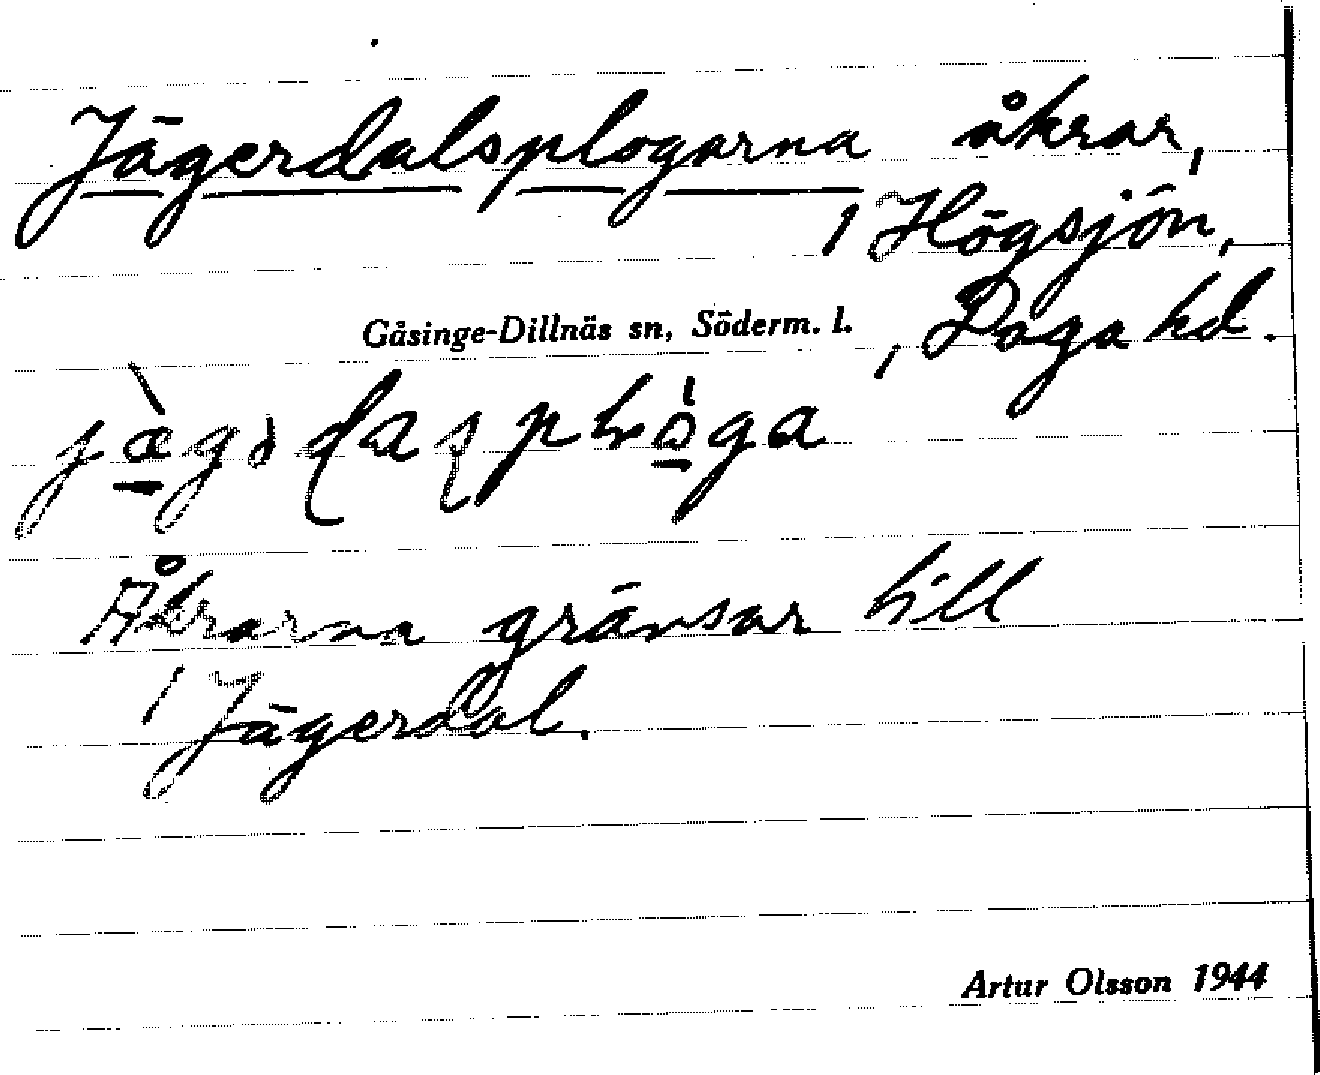 Jägerdalsplogarna åkrar,
/ Högsjön,
Gåsinge-Dillnäs sn, Söderm. l. , Daga hd.
Åkrarna gränsar till
/ Jägerdal.
Artur Olsson 1944